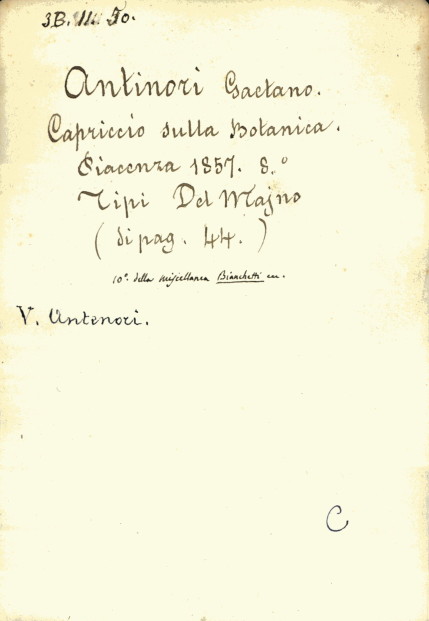 3B. II. 50.
Antinori Gaetano.
Capriccio sulla Botanica.
Piacenza 1857. 8.°
Tipi Del Majno
(di pag. 44.)
10°. della miscellanea Bianchetti
V. Antenori.
C